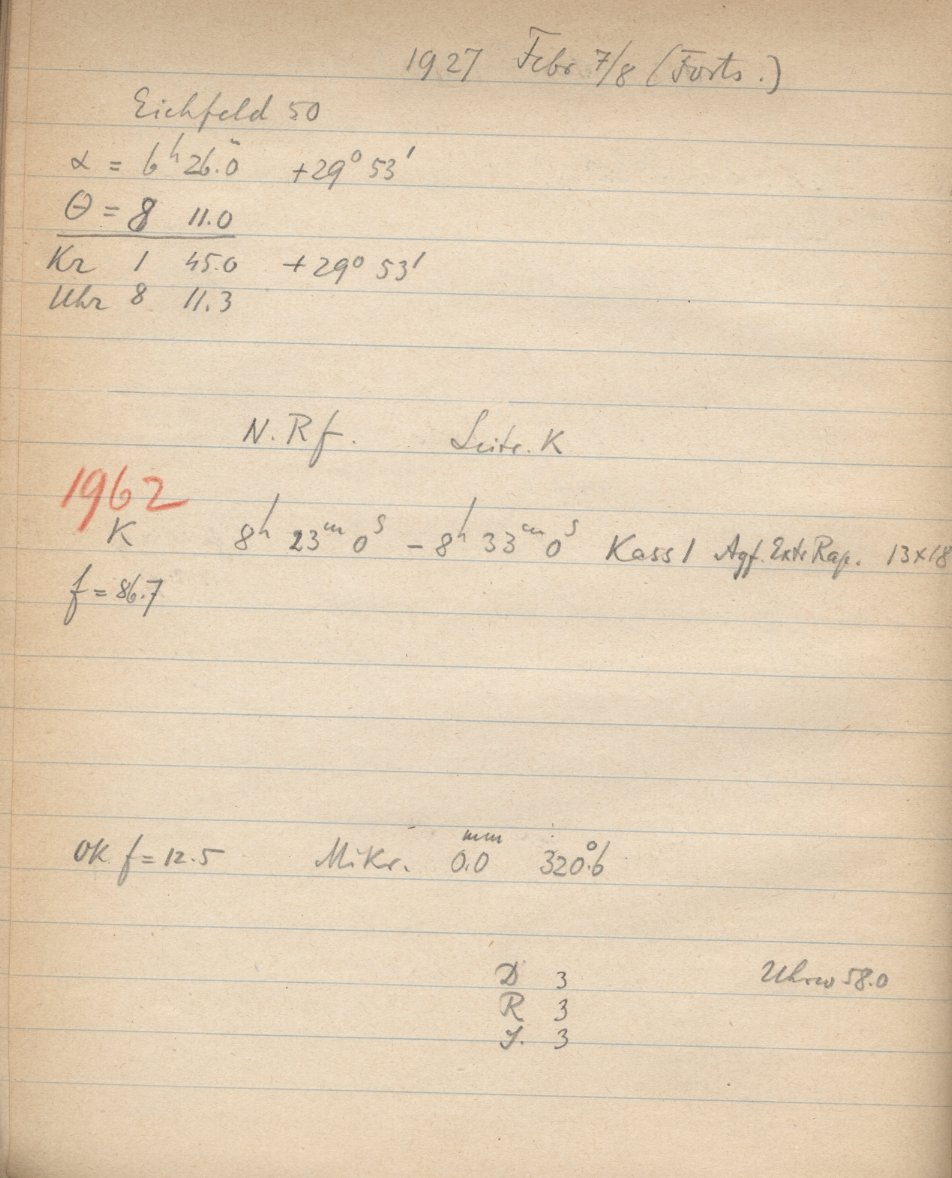 1927 Febr 7/8 (Forts.)
Eichfeld 50
α = 6ʰ 26.ᵐ0 +29° 53'
Θ = 8 11.0
Kr 1 45.0 +29° 53'
Uhr 8 11.3
N. Rf. Leitr. K
1962
K 8ʰ 23ᵐ 0ˢ – 8ʰ 33ᵐ 0ˢ Kass 1 Agf. Extr Rap. 13×18
f = 86.7
Ok f = 12.5 Mikr. 0.0 mm 320.°6
D 3 Uhrw 58.0
R 3
J. 3